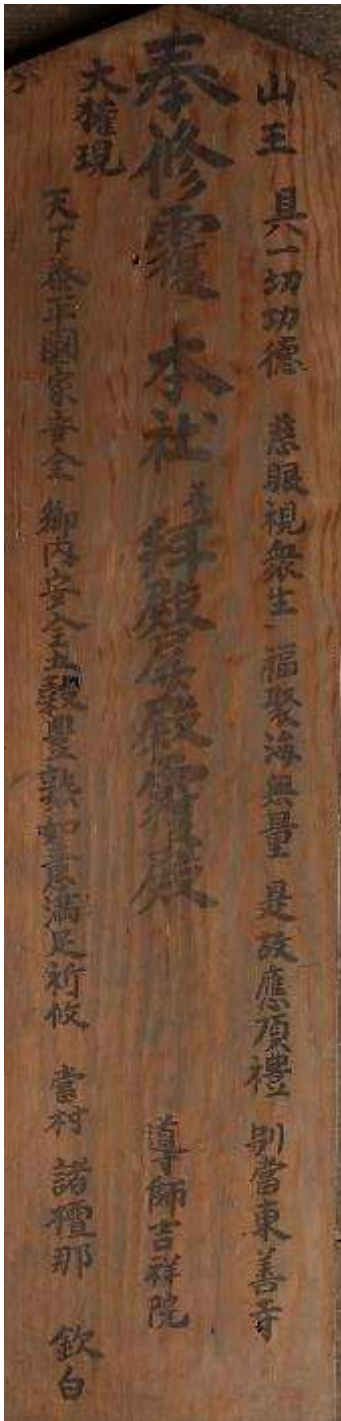 山王 具一切功徳 慈眼視衆生 福聚海無量 是故應頂禮 別當東善寺
奉修覆 本社 并 拜殿 殿 寳殿 導師吉祥院
大権現 天下泰平國家安全 郷内安全五穀豊熟如意満足祈攸 當村 諸檀那 欽白